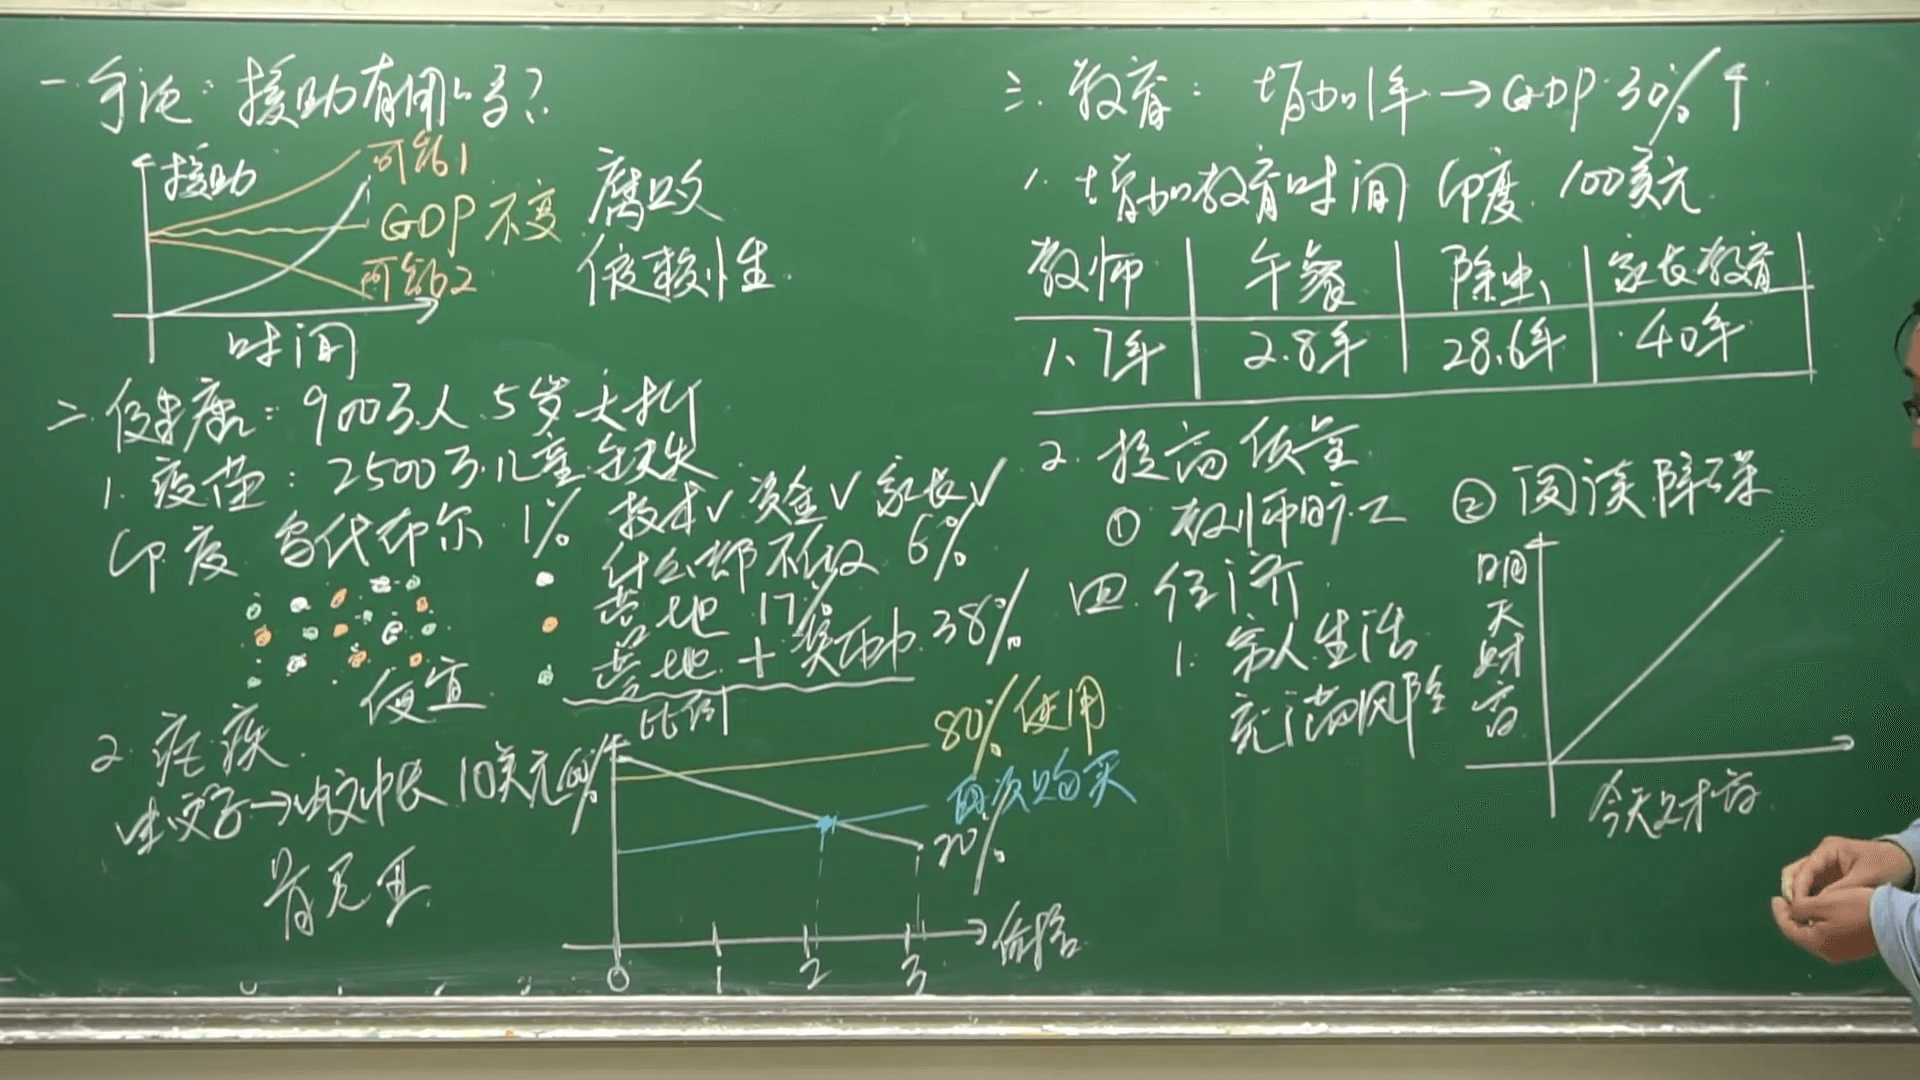 一.争论:援助有用吗?
援助
可能1
GDP不变
可能2
时间
腐败
依赖性
二.健康:900万人 5岁夭折
1.疫苗:2500万儿童缺失
印度 乌代布尔 1% 技术√ 资金√ 家长√
什么都不做 6%
营地 17%
营地+奖励 38%
便宜
2.疟疾
蚊子→蚊帐 10美元
肯尼亚
比例
80%使用
再次购买
20%
价格
0 1 2 3
三.教育:增加1年→GDP 30%↑
1.增加教育时间 印度 100美元
教师 午餐 除虫 家长教育
1.7年 2.8年 28.6年 40年
2.提高质量
①教师旷工 ②阅读障碍
四.经济
1.穷人生活
充满风险
明天财富
今天财富